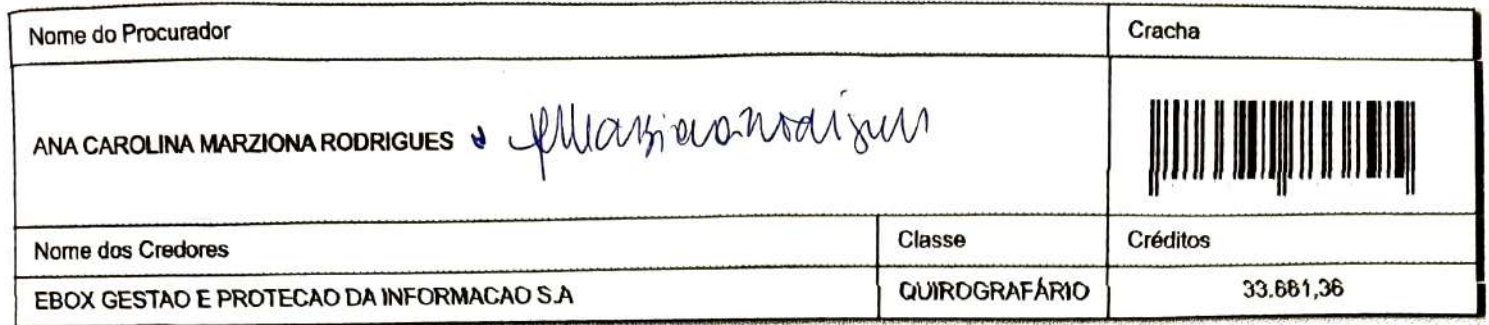 Nome do Procurador
Cracha
ANA CAROLINA MARZIONA RODRIGUES
Nome dos Credores
Classe
Créditos
EBOX GESTAO E PROTECAO DA INFORMACAO S.A
QUIROGRAFÁRIO
33.681,36